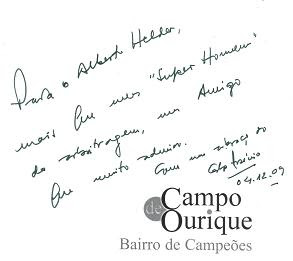 Para o Alberto Helder,
mais que um "Super Homem"
da arbitragem, um Amigo
que muito admiro. Com um abraço do
04.12.09
de Campo
Ourique
Bairro de Campeões